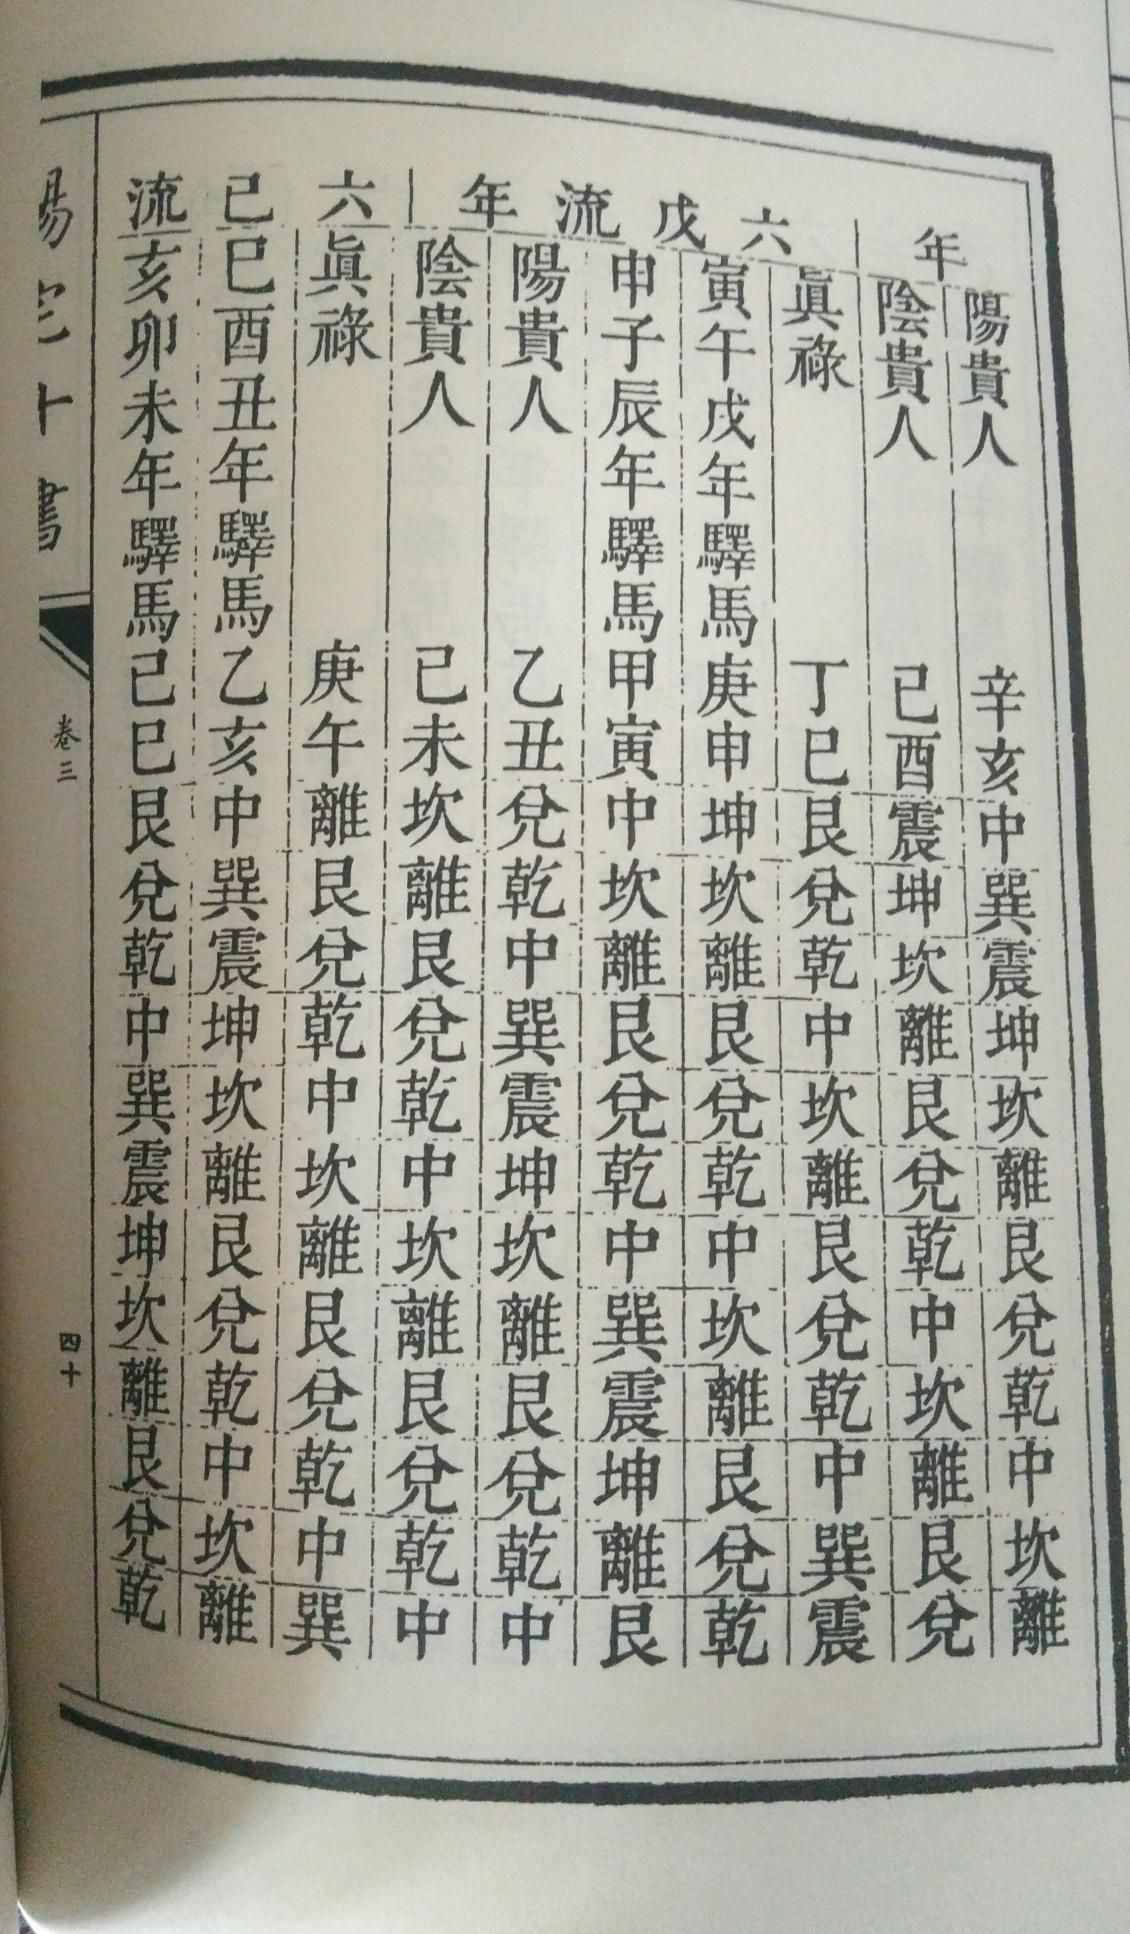 年
陽貴人 辛亥中巽震坤坎離艮兌乾中坎離
陰貴人 己酉震坤坎離艮兌乾中坎離艮兌
六戊流年
眞祿 丁巳艮兌乾中坎離艮兌乾中巽震
寅午戌年驛馬庚申坤坎離艮兌乾中坎離艮兌乾
申子辰年驛馬甲寅中坎離艮兌乾中巽震坤離艮
陽貴人 乙丑兌乾中巽震坤坎離艮兌乾中
陰貴人 己未坎離艮兌乾中坎離艮兌乾中
六己流
眞祿 庚午離艮兌乾中坎離艮兌乾中巽
巳酉丑年驛馬乙亥中巽震坤坎離艮兌乾中坎離
亥卯未年驛馬己巳艮兌乾中巽震坤坎離艮兌乾
陽宅十書
卷三
四十